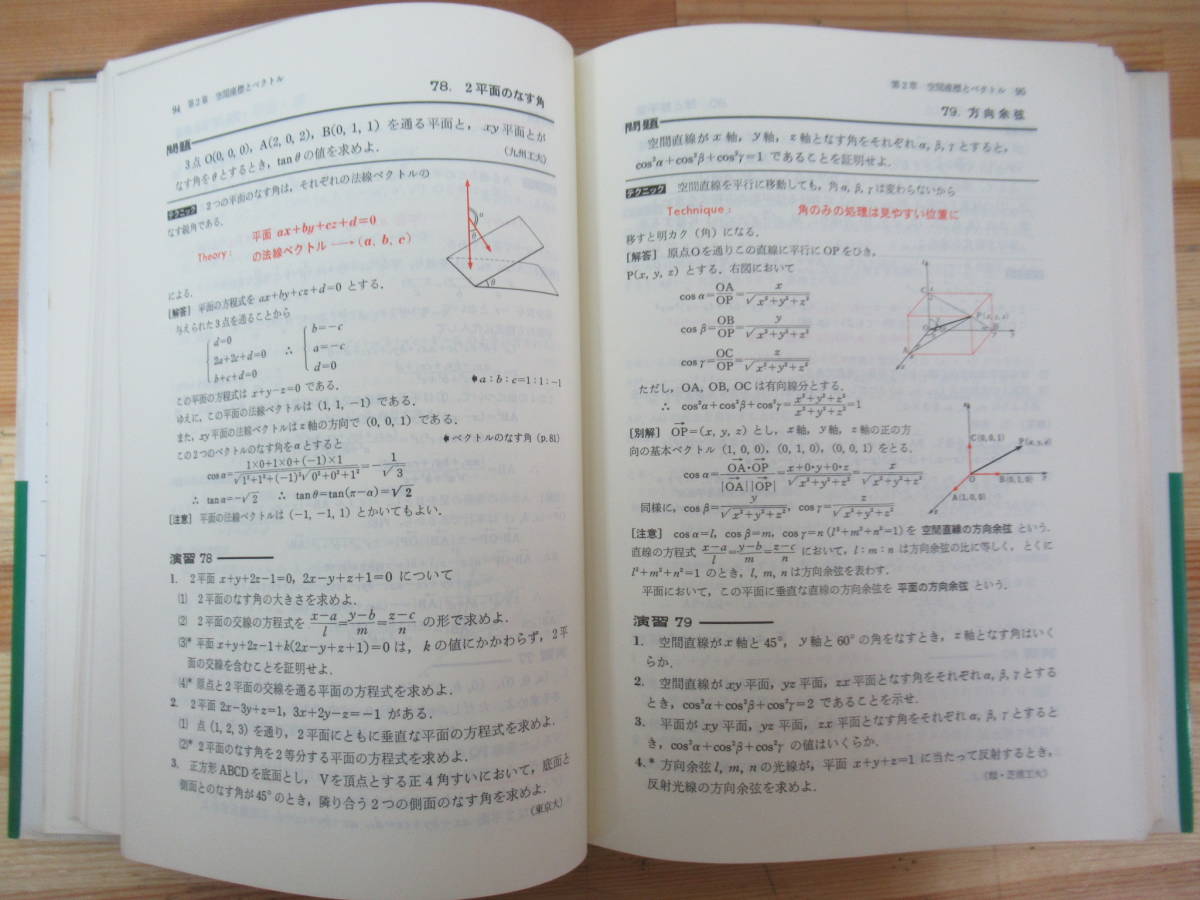 94 第2章 空間座標とベクトル
78. 2平面のなす角
問題
3点O(0, 0, 0), A(2, 0, 2), B(0, 1, 1) を通る平面と, xy平面とが
なす角をθとするとき, tanθの値を求めよ.
(九州工大)
テクニック 2つの平面のなす角は, それぞれの法線ベクトルの
なす鋭角である.
Theory: 平面 ax+by+cz+d=0
の法線ベクトル ─→ (a, b, c)
による.
[解答] 平面の方程式を ax+by+cz+d=0 とする.
与えられた3点を通ることから
d=0
2a+2c+d=0
b+c+d=0
∴
b=-c
a=-c
d=0
この平面の方程式は x+y-z=0 である.
●a:b:c=1:1:-1
ゆえに, この平面の法線ベクトルは (1, 1, -1) である.
また, xy平面の法線ベクトルはz軸の方向で (0, 0, 1) である.
この2つのベクトルのなす角をαとすると
●ベクトルのなす角 (p.81)
cosα=(1×0+1×0+(-1)×1)/(√1²+1²+(-1)²√0²+0²+1²)=-1/√3
∴ tanα=-√2 ∴ tanθ=tan(π-α)=√2
[注意] 平面の法線ベクトルは (-1, -1, 1) とかいてもよい.
演習 78
1. 2平面 x+y+2z-1=0, 2x-y+z+1=0 について
(1) 2平面のなす角の大きさを求めよ.
(2) 2平面の交線の方程式を (x-a)/l=(y-b)/m=(z-c)/n の形で求めよ.
(3)* 平面 x+y+2z-1+k(2x-y+z+1)=0 は, kの値にかかわらず, 2平
面の交線を含むことを証明せよ.
(4)* 原点と2平面の交線を通る平面の方程式を求めよ.
2. 2平面 2x-3y+z=1, 3x+2y-z=-1 がある.
(1) 点 (1, 2, 3) を通り, 2平面にともに垂直な平面の方程式を求めよ.
(2)* 2平面のなす角を2等分する平面の方程式を求めよ.
3. 正方形ABCDを底面とし, Vを頂点とする正4角すいにおいて, 底面と
側面とのなす角が45°のとき, 隣り合う2つの側面のなす角を求めよ.
(東京大)
第2章 空間座標とベクトル 95
79. 方向余弦
問題
空間直線がx軸, y軸, z軸となす角をそれぞれα, β, γとすると,
cos²α+cos²β+cos²γ=1 であることを証明せよ.
テクニック 空間直線を平行に移動しても, 角α, β, γは変わらないから
Technique: 角のみの処理は見やすい位置に
移すと明カク (角) になる.
[解答] 原点Oを通りこの直線に平行にOPをひき,
P(x, y, z) とする. 右図において
cosα=OA/OP=x/√x²+y²+z²
cosβ=OB/OP=y/√x²+y²+z²
cosγ=OC/OP=z/√x²+y²+z²
ただし, OA, OB, OCは有向線分とする.
∴ cos²α+cos²β+cos²γ=(x²+y²+z²)/(x²+y²+z²)=1
[別解] OP=(x, y, z) とし, x軸, y軸, z軸の正の方
向の基本ベクトル (1, 0, 0), (0, 1, 0), (0, 0, 1) をとる.
cosα=OA・OP/|OA||OP|=(x+0・y+0・z)/√x²+y²+z²=x/√x²+y²+z²
同様に, cosβ=y/√x²+y²+z², cosγ=z/√x²+y²+z²
C(0, 0, 1)
P(x, y, z)
B(0, 1, 0)
A(1, 0, 0)
[注意] cosα=l, cosβ=m, cosγ=n (l²+m²+n²=1) を 空間直線の方向余弦 という.
直線の方程式 (x-a)/l=(y-b)/m=(z-c)/n において, l:m:nは方向余弦の比に等しく, とくに
l²+m²+n²=1 のとき, l, m, nは方向余弦を表わす.
平面において, この平面に垂直な直線の方向余弦を 平面の方向余弦 という.
演習 79
1. 空間直線がx軸と45°, y軸と60°の角をなすとき, z軸となす角はいく
らか.
2. 空間直線がxy平面, yz平面, zx平面となす角をそれぞれα, β, γとする
とき, cos²α+cos²β+cos²γ=2 であることを示せ.
3. 平面がxy平面, yz平面, zx平面となす角をそれぞれα, β, γとすると
き, cos²α+cos²β+cos²γ の値はいくらか.
4.* 方向余弦l, m, nの光線が, 平面 x+y+z=1 に当たって反射するとき,
反射光線の方向余弦を求めよ.
(類・芝浦工大)